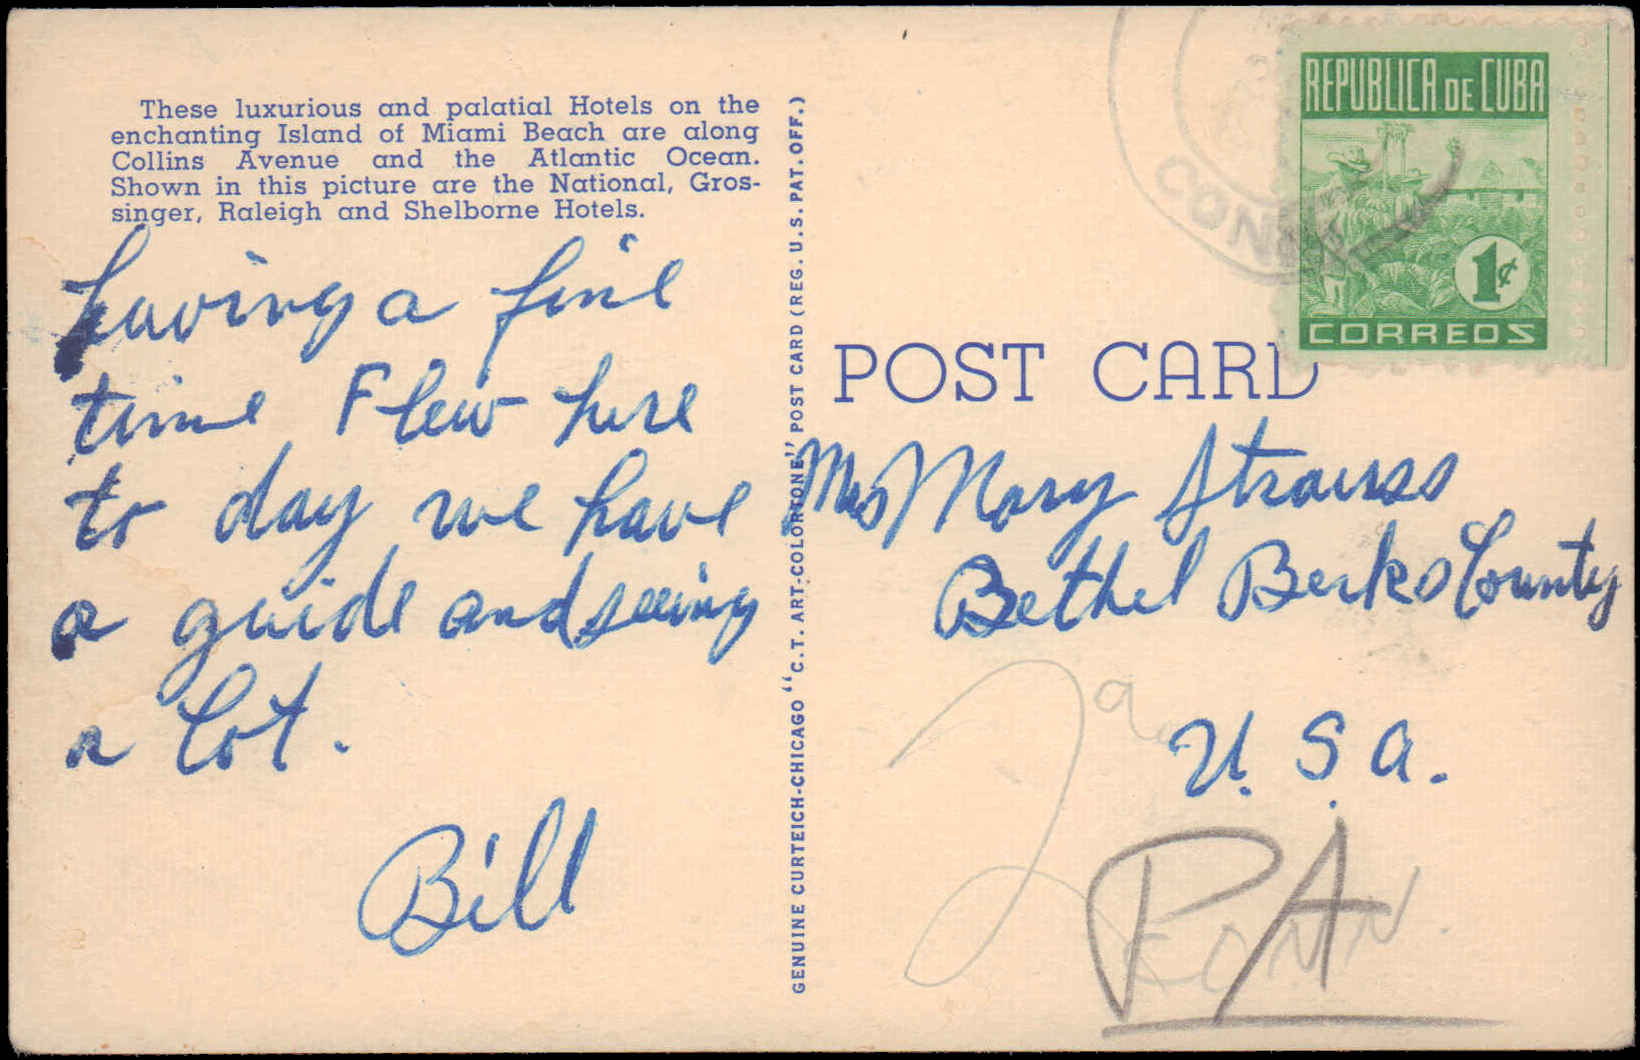 These luxurious and palatial Hotels on the
enchanting Island of Miami Beach are along
Collins Avenue and the Atlantic Ocean.
Shown in this picture are the National, Gros-
singer, Raleigh and Shelborne Hotels.
having a fine
time Flew here
to day we have
a guide and seeing
a lot.
Bill
GENUINE CURTEICH-CHICAGO "C.T. ART-COLORTONE" POST CARD (REG. U.S. PAT. OFF.)
CON
REPUBLICA DE CUBA
1¢
CORREOS
POST CARD
Mrs Mary Strauss
Bethel Berks County
U.S.A.
PA
CONN.